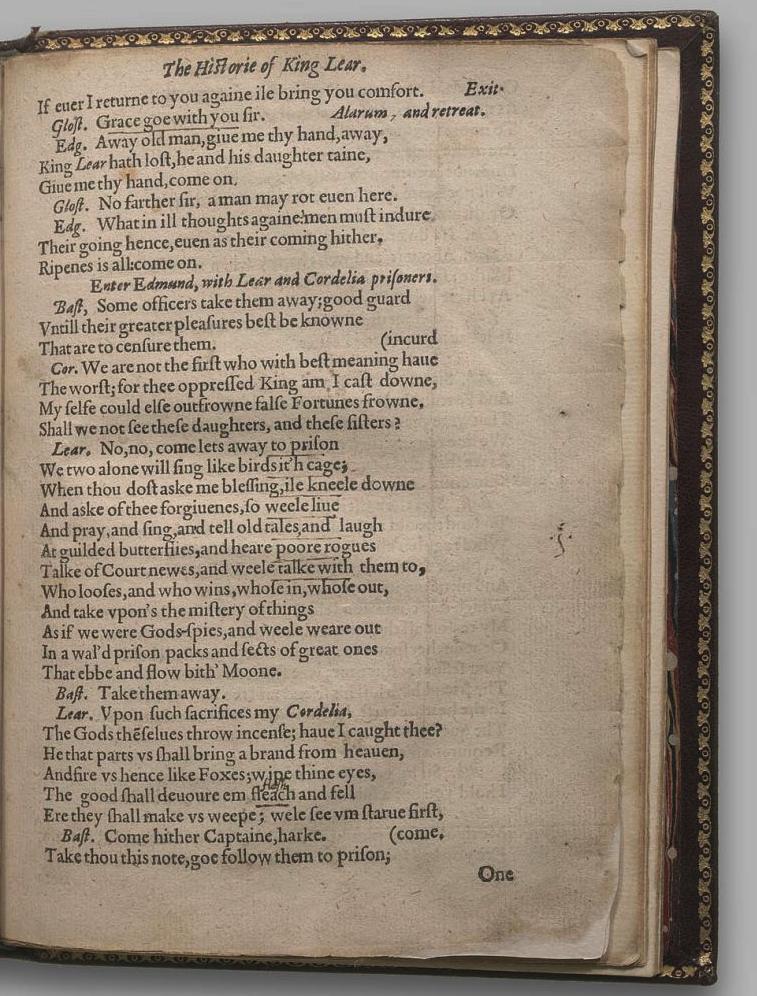 The Historie of King Lear.
If euer I returne to you againe ile bring you comfort. Exit.
Glost. Grace goe with you sir. Alarum, and retreat.
Edg. Away old man, giue me thy hand, away,
King Lear hath lost, he and his daughter taine,
Giue me thy hand, come on.
Glost. No farther sir, a man may rot euen here.
Edg. What in ill thoughts againe? men must indure
Their going hence, euen as their coming hither,
Ripenes is all: come on.
Enter Edmund, with Lear and Cordelia prisoners.
Bast, Some officers take them away; good guard
Vntill their greater pleasures best be knowne
That are to censure them. (incurd
Cor. We are not the first who with best meaning haue
The worst; for thee oppressed King am I cast downe,
My selfe could else outfrowne false Fortunes frowne,
Shall we not see these daughters, and these sisters?
Lear. No, no, come lets away to prison
We two alone will sing like birds it'h cage;
When thou dost aske me blessing, ile kneele downe
And aske of thee forgiuenes, so weele liue
And pray, and sing, and tell old tales, and laugh
At guilded butterflies, and heare poore rogues
Talke of Court newes, and weele talke with them to,
Who looses, and who wins, whose in, whose out,
And take vpon's the mistery of things
As if we were Gods-spies, and weele weare out
In a wal'd prison packs and sects of great ones
That ebbe and flow bith' Moone.
Bast. Take them away.
Lear. Vpon such sacrifices my Cordelia,
The Gods thēselues throw incense; haue I caught thee?
He that parts vs shall bring a brand from heauen,
And fire vs hence like Foxes; wipe thine eyes,
The good shall deuoure em fleach and fell
Ere they shall make vs weepe; wele see vm starue first,
Bast. Come hither Captaine, harke. (come.
Take thou this note, goe follow them to prison;
One